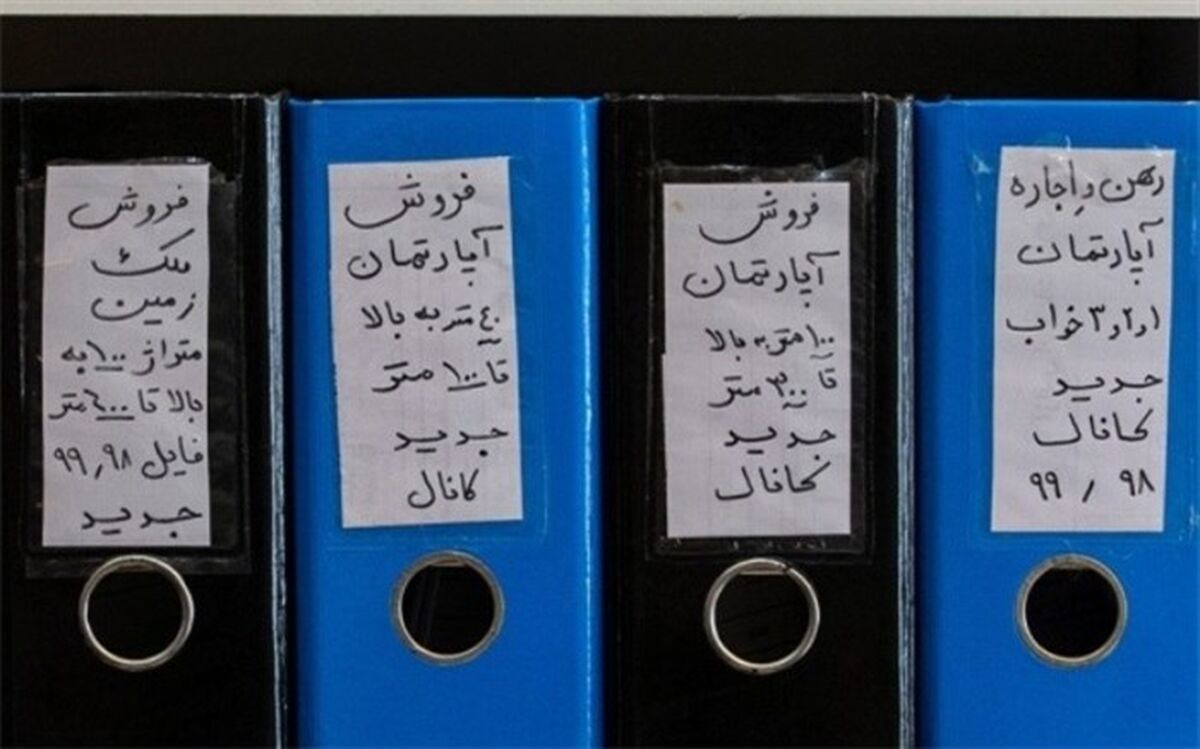 رهن و اجاره
آپارتمان
۱و۲و۳ خواب
جدید
کانال
۹۸ / ۹۹
فروش
آپارتمان
۱۰۰ متر به بالا
تا ۳۰۰ متر
جدید
کانال
فروش
آپارتمان
۴۰ متر به بالا
تا ۱۰۰ متر
جدید
کانال
فروش
ملک
زمین
متراژ ۱۰۰ به
بالا تا متر
فایل ۹۸٫۹۹
جدید